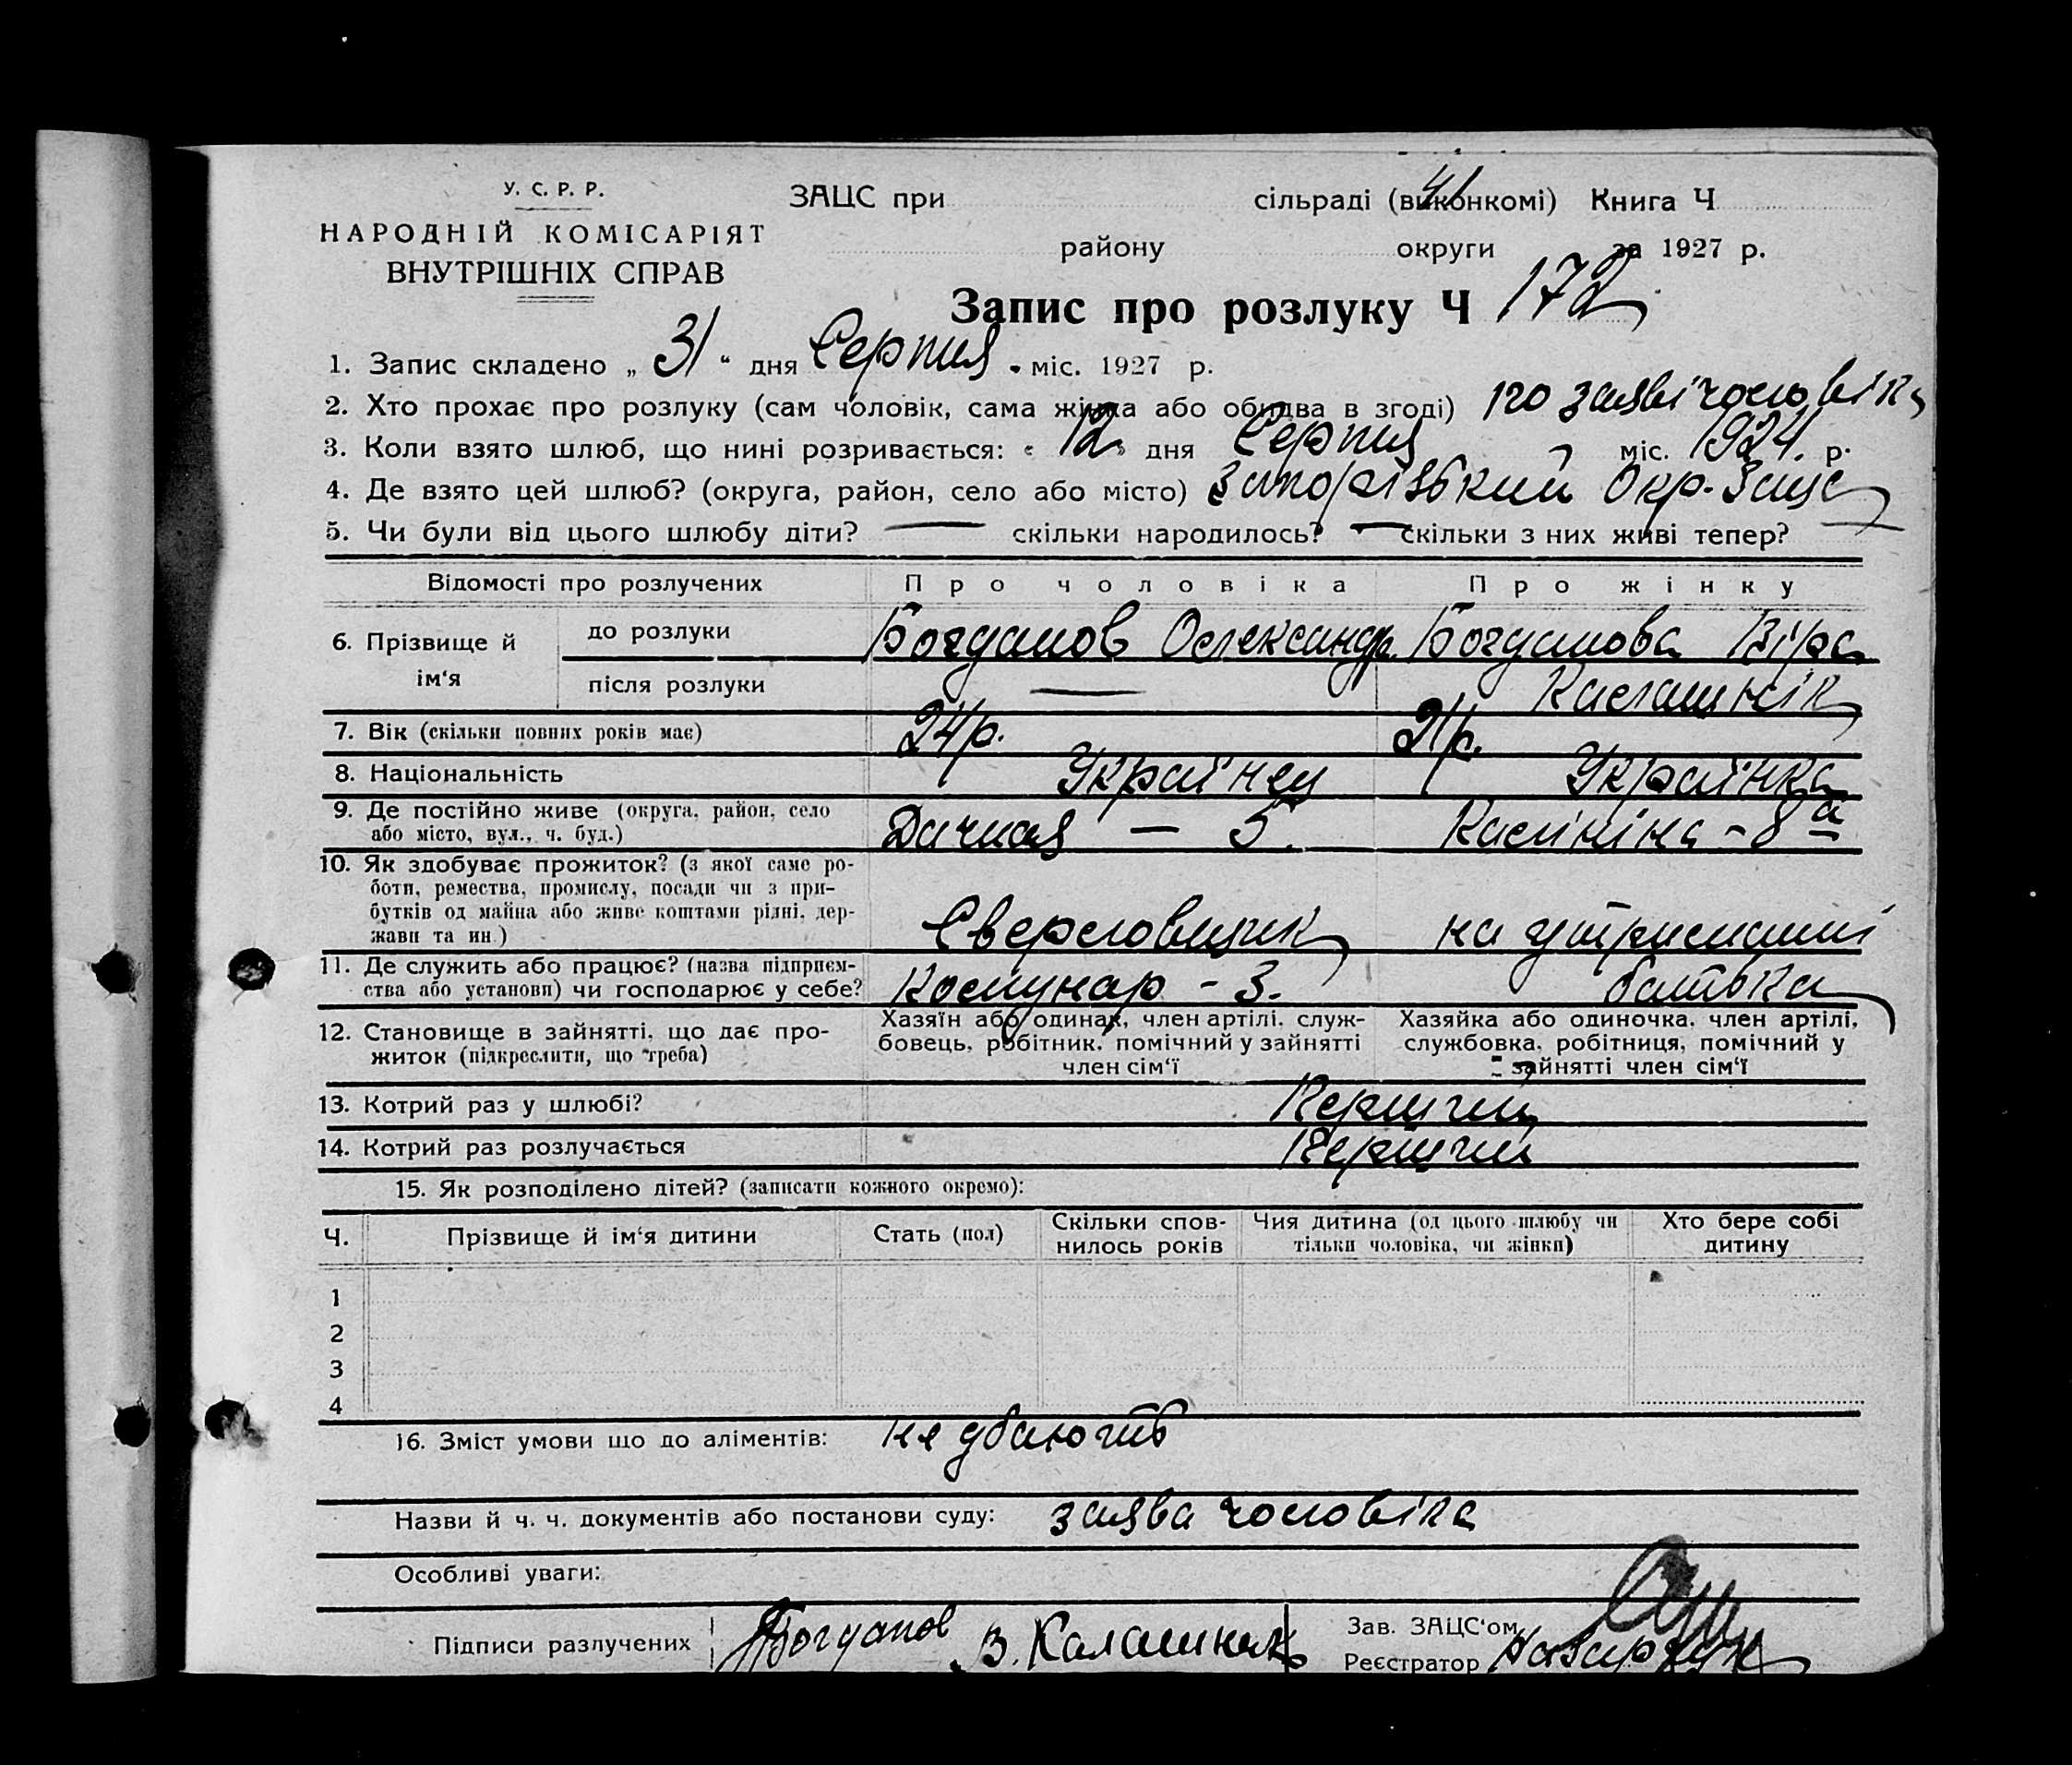 У. С. Р. Р.
НАРОДНІЙ КОМІСАРІЯТ
ВНУТРІШНІХ СПРАВ
ЗАЦС при сільраді (виконкомі) Книга Ч
району округи за 1927 р.
Запис про розлуку Ч 172
1. Запис складено „ 31 “ дня Серпня міс. 1927 р.
2. Хто прохає про розлуку (сам чоловік, сама жінка або обидва в згоді) по заяві чоловіка
3. Коли взято шлюб, що нині розривається: « 12 » дня Серпня міс. 1924. р.
4. Де взято цей шлюб? (округа, район, село або місто) Запорізький Окр. Зацс
5. Чи були від цього шлюбу діти? — скільки народилось? — скільки з них живі тепер? —
Відомості про розлучених Про чоловіка Про жінку
6. Прізвище й ім‘я до розлуки Богданов Олександр Богданова Віра
після розлуки — Калашнік
7. Вік (скільки повних років має) 24 р. 21 р.
8. Національність Українец Українка
9. Де постійно живе (округа, район, село
або місто, вул., ч. буд.) Дачная — 5. Калініна - 8 а
10. Як здобуває прожиток? (з якої саме ро-
боти, ремества, промислу, посади чи з при-
бутків од майна або живе коштами рідні, дер-
жави та ин.) Сверловщик на утриманні
11. Де служить або працює? (назва підприєм-
ства або установи) чи господарює у себе? Комунар - З. батька
12. Становище в зайнятті, що дає про-
житок (підкреслити, що треба)
Хазяїн або одинак, член артілі, служ-
бовець, робітник, помічний у зайнятті
член сім‘ї
Хазяйка або одиночка, член артілі,
службовка, робітниця, помічний у
зайнятті член сім‘ї
13. Котрий раз у шлюбі? Перший
14. Котрий раз розлучається Перший
15. Як розподілено дітей? (записати кожного окремо):
Ч. Прізвище й ім‘я дитини Стать (пол) Скільки спов-
нилось років Чия дитина (од цього шлюбу чи
тільки чоловіка, чи жінки) Хто бере собі
дитину
1
2
3
4
16. Зміст умови що до аліментів: не дбають
Назви й ч. ч. документів або постанови суду: заява чоловіка
Особливі уваги:
Підписи разлучених Богданов В. Калашнік
Зав. ЗАЦС‘ом
Реєстратор Назарчук